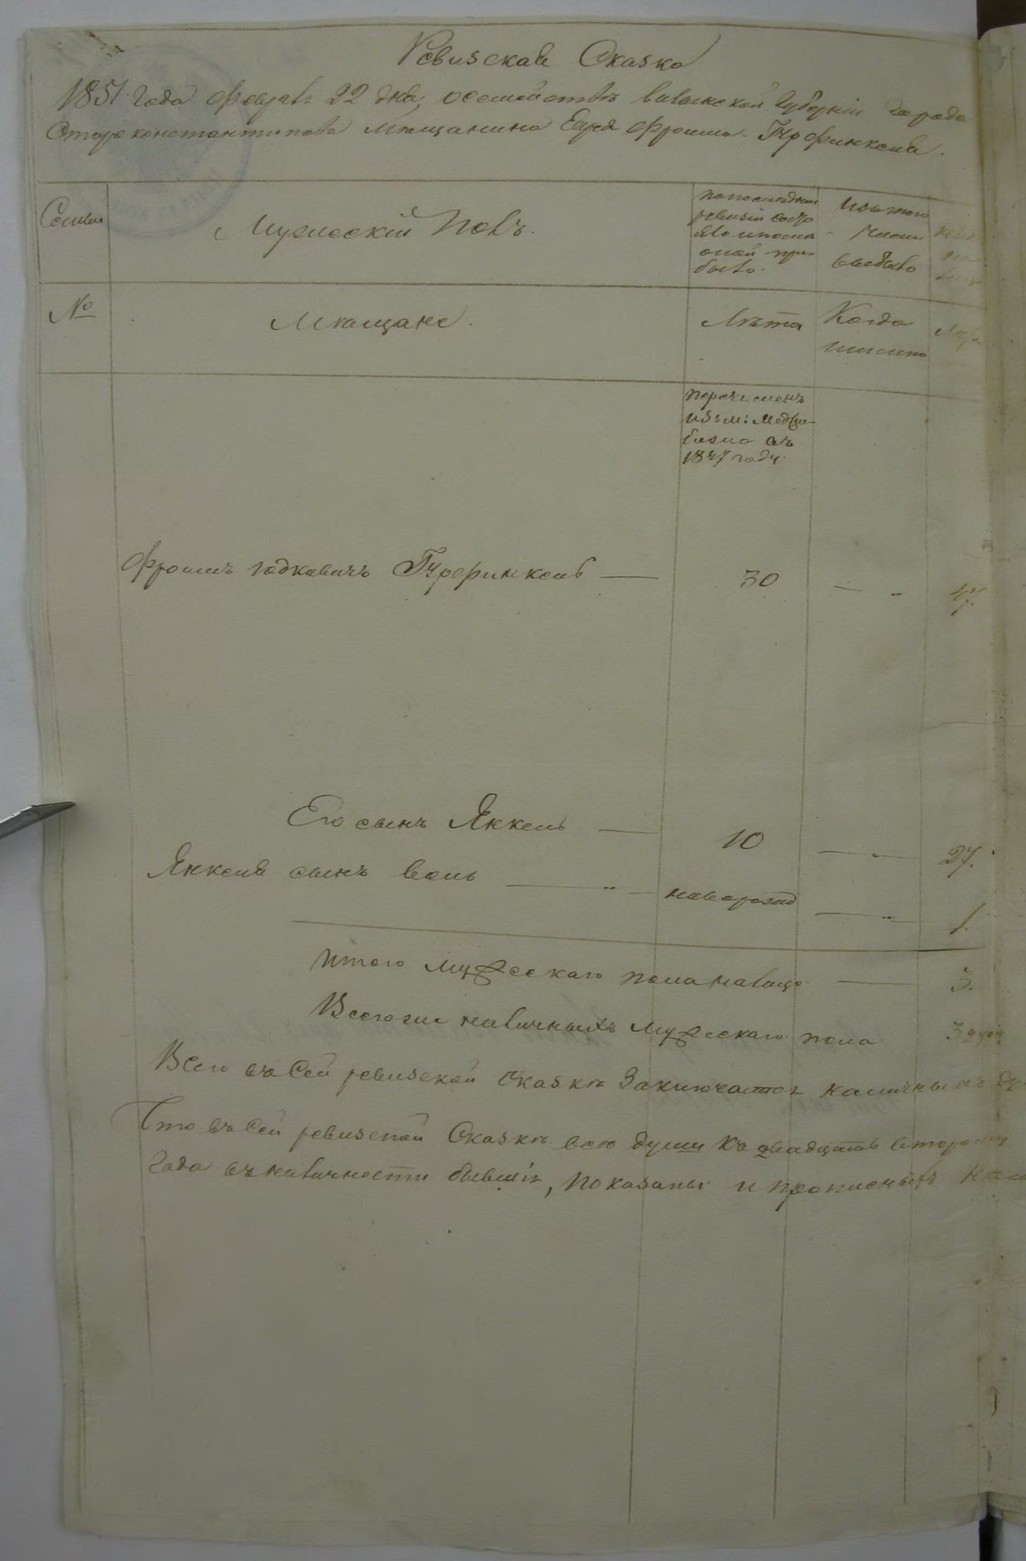 Ревизская Сказка
1851 года Февраля 22 дня, о семействе Волынской Губернии города
Староконстантинова мещанина Еврея Фроима Гурфинкеля.
Семьи
Мужеский Полъ.
По последней ревизии состояло и после оной прибыло.
Изъ того числа выбыло
№
Мещане.
Лета
Когда именно
Лета
Перечисленъ
изъ м: Меджи-
божа въ
1847 году.
Фроимъ Юдковичъ Гурфинкель — 30 — 47.
Его сынъ Янкель — 10 — 27.
Янкеля сынъ Вольъ — новорожд — 1.
Итого мужескаго пола налицо — 3.
Всего же наличныхъ мужескаго пола 3 души
Всего въ сей ревизской сказке заключается наличныхъ
Что въ сей ревизской Сказке все души къ двадцать второму
года въ наличности бывшiя, показаны и прописныхъ